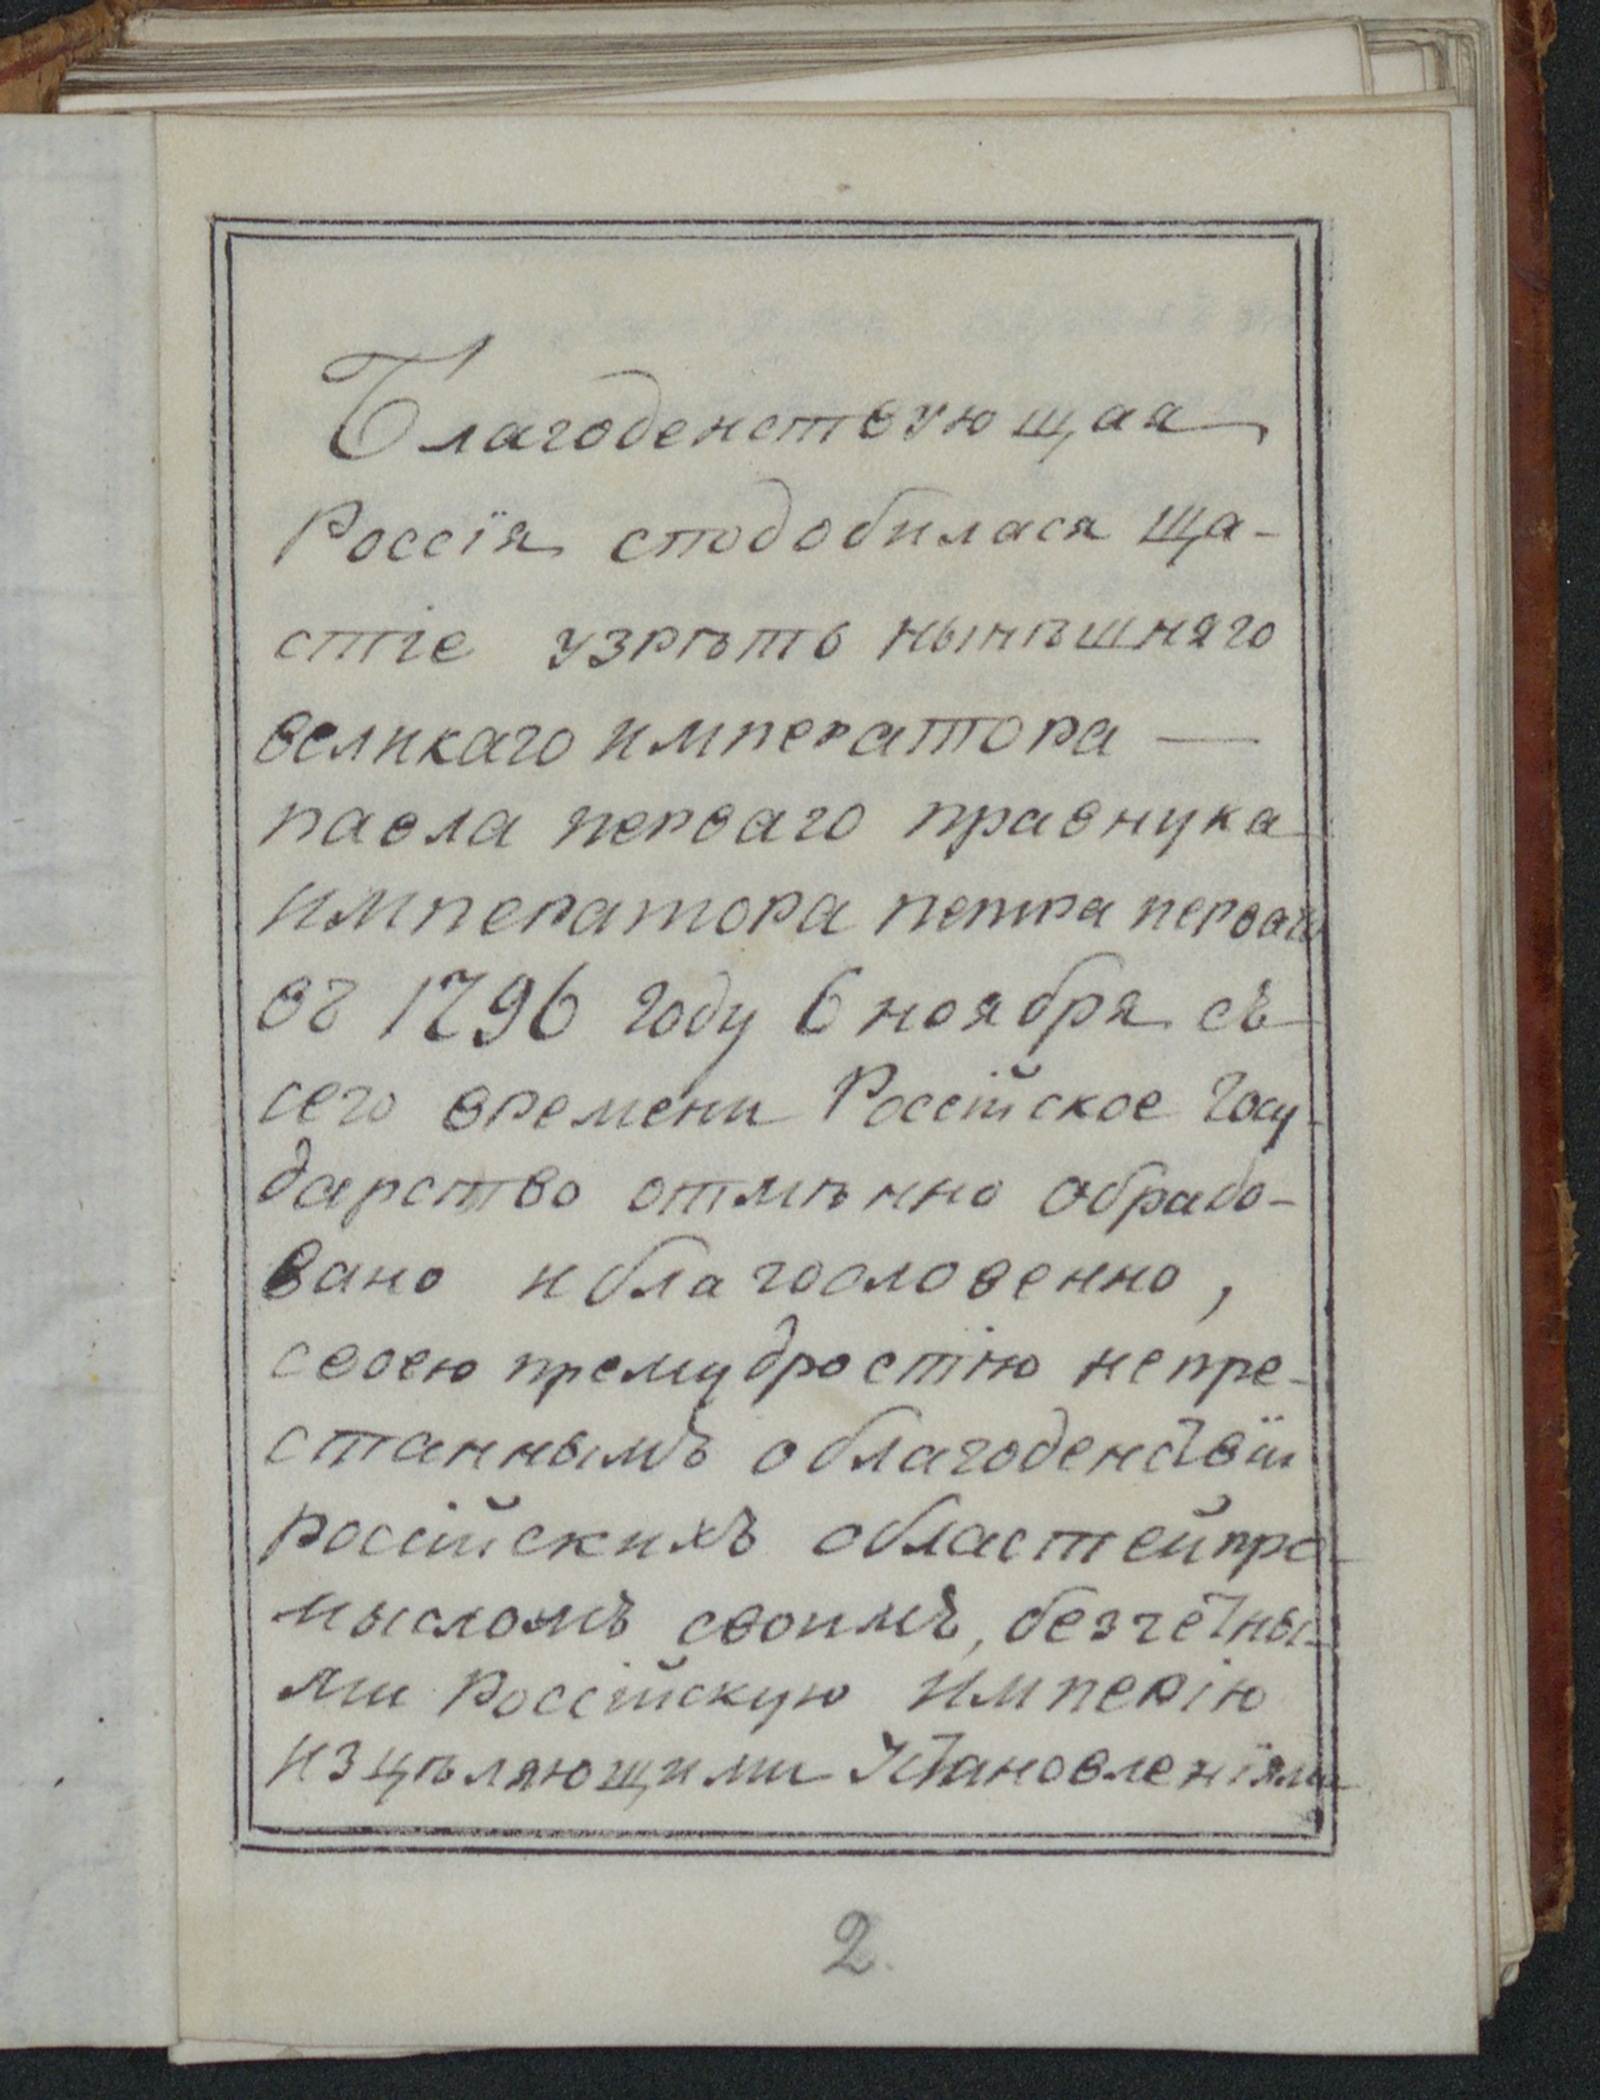 Благоденствующая
Россїя сподобилася Ща-
стіе узрѣть нынѣшняго
великаго императора —
павла перваго правнука
императора петра перваго
въ 1796 году 6 ноября съ
сего времени Россійское Госу-
дарство отмѣнно обрадо-
вано и благословенно,
своею премудростію непре-
станнымъ о благоденствїи
россійскихъ областей про-
мысломъ своимъ, безчетны-
ми Россійскую Имперію
изцѣляющими Установленїями
2.